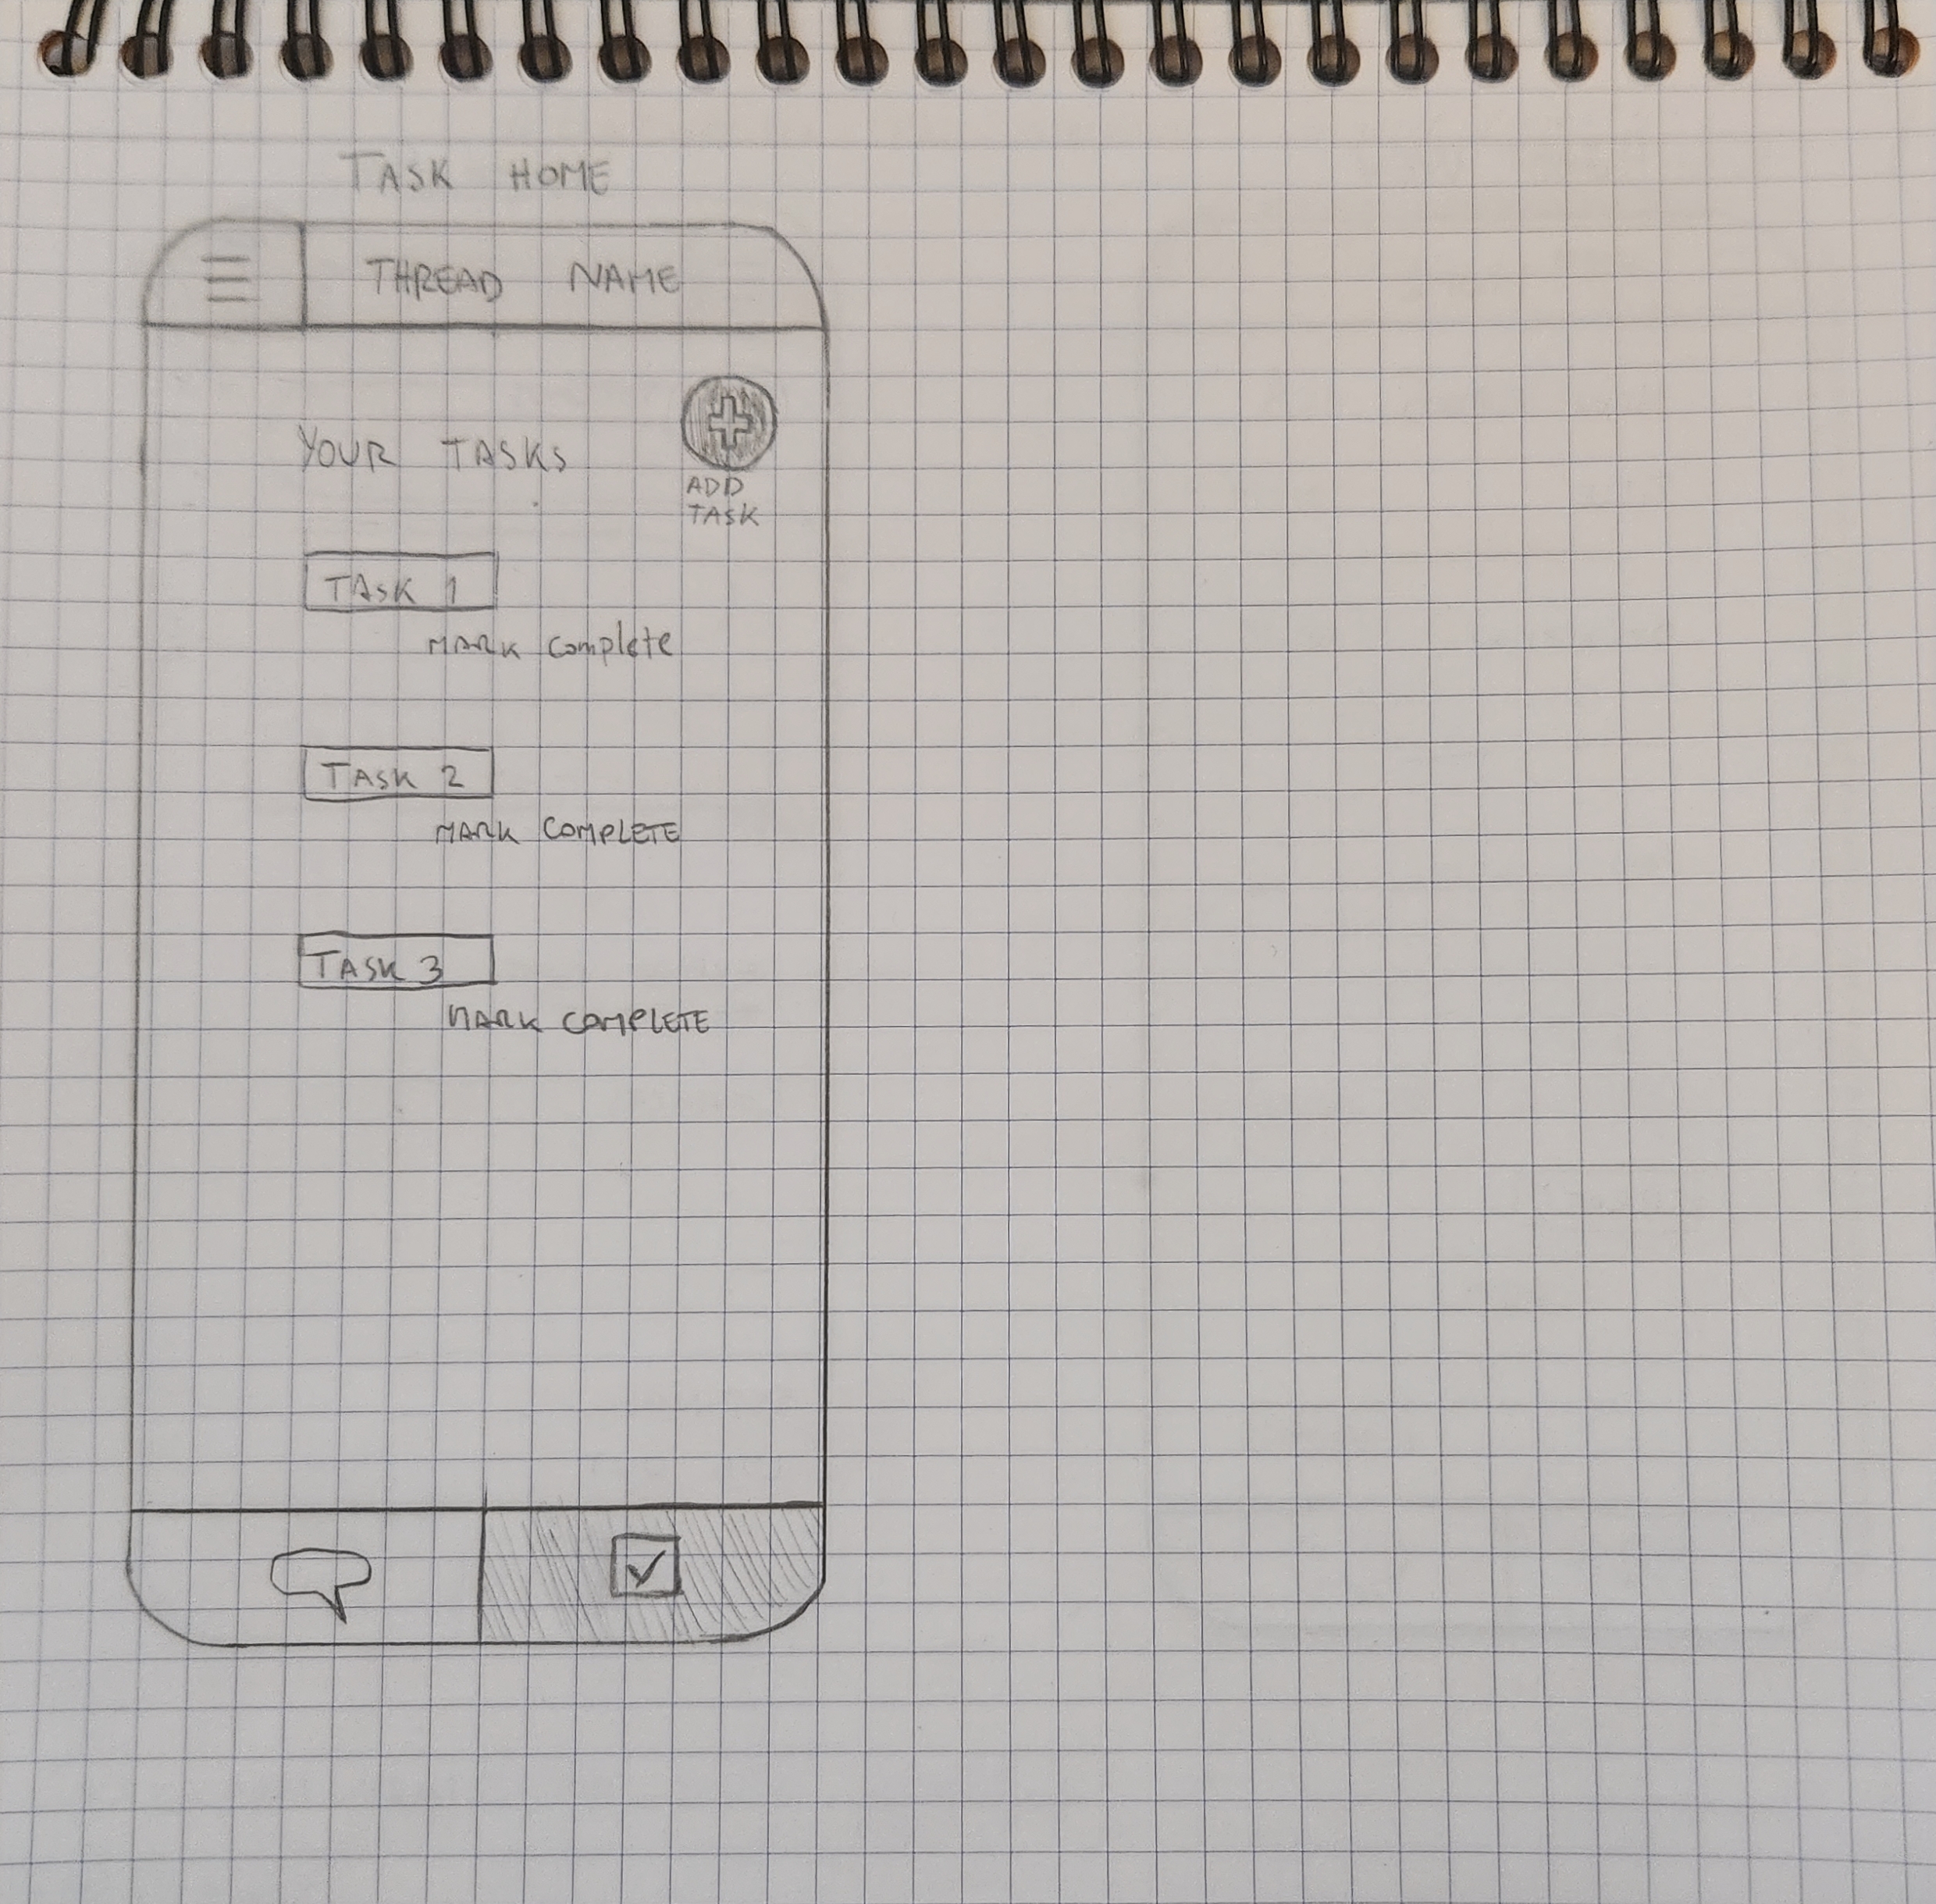 TASK HOME
THREAD NAME
YOUR TASKS
ADD
TASK
TASK 1
MARK Complete
TASK 2
MARK COMPLETE
TASK 3
MARK COMPLETE